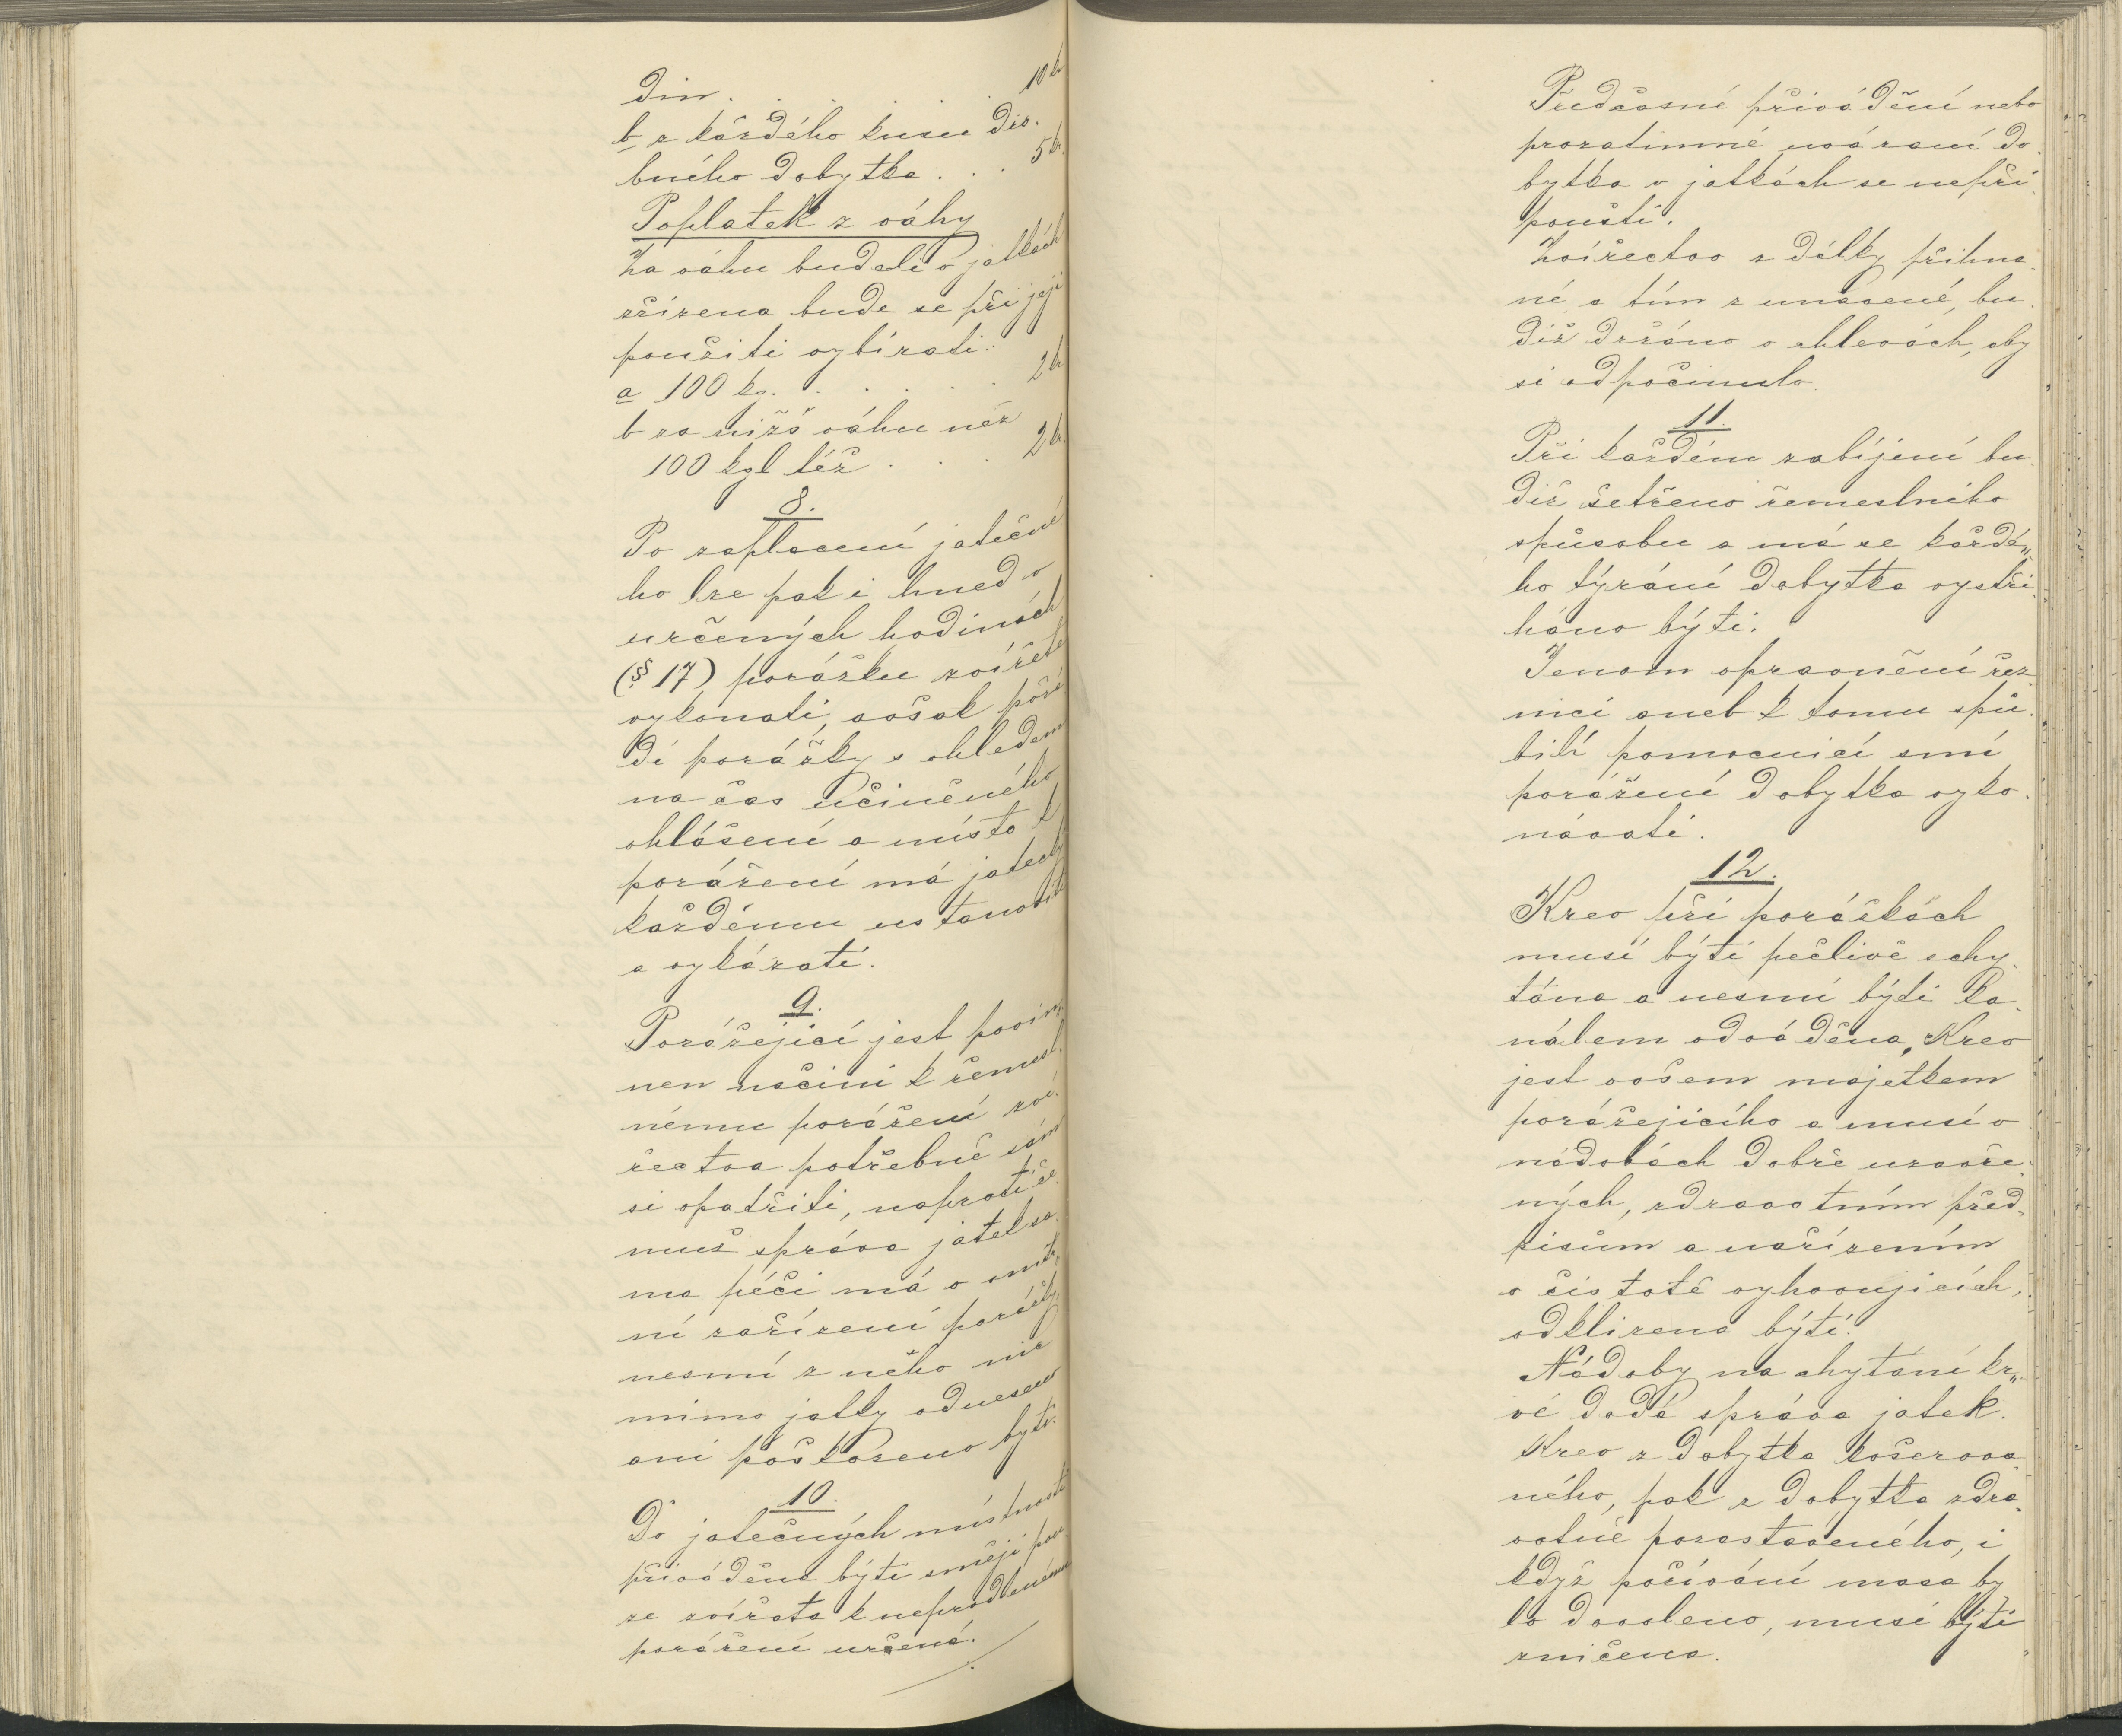 din . . . . 10 kr
b z každého kusu dro-
bného dobytka . . . 5 kr
Poplatek z váhy
Za váhu budeli v jatkách
zřízena bude se při její
použiti vybírati:
a 100 kg. . . . . . 2 kr
b za nižš váhu než
100 kgl též . . . 2 kr
8.
Po zaplacení jatečné-
ho lze pak i hned v
určených hodinách
(§ 17) porážku zvířete
vykonati, avšak pořa
dí porážky s ohledem
na čas učiněného
ohlášení a místo k
porážení má jateč.
každému ustanoviti
a vykázati.
9.
Porážející jest povin-
nen náčiní k řemesl-
nému porážení zví-
řectva potřebné sám
si opatřiti, naproti če-
muž správa jatek sa-
ma péči má o vnitř-
ní zařízení porážky
nesmí z něho nic
mimo jatky odneseno
ani poškozeno býti.
10.
Do jatečných místností
přiváděna býti smějí pou-
ze zvířata k neprodlenému
porážení určená.
Předčasné přivádění nebo
prozatimné uvázaní do-
bytka v jatkách se nepři-
pouští.
Zvířectvo z dálky přihna-
né, a tím z unavené, bu-
diž držáno v chlevách, aby
si odpočinulo.
11.
Při každém zabíjení bu-
diž šetřeno řemeslného
spůsobu a má se každé„
ho týrání dobytka vystří-
háno býti.
Jenom oprávnění řez-
níci aneb k tomu spů-
bilí pomocníci smí
porážení dobytka vyko-
návati.
12.
Krev při porážkách
musí býti pečlivě schy-
tána a nesmí býti ka-
nálem odváděna, Krev
jest ovšem majetkem
porážejícího a musí v
nádobách dobře uzavře-
ných, zdravotním před-
pisům a nařízením
o čistotě vyhovujících,
odklizena býti.
Nádoby na chytání kr„
ve dodá správa jatek.
Krev z dobytka košerova-
ného, pak z dobytka zdra-
votně pozastaveného, i
když požívání masa by
lo dovoleno, musí býti
zničena.